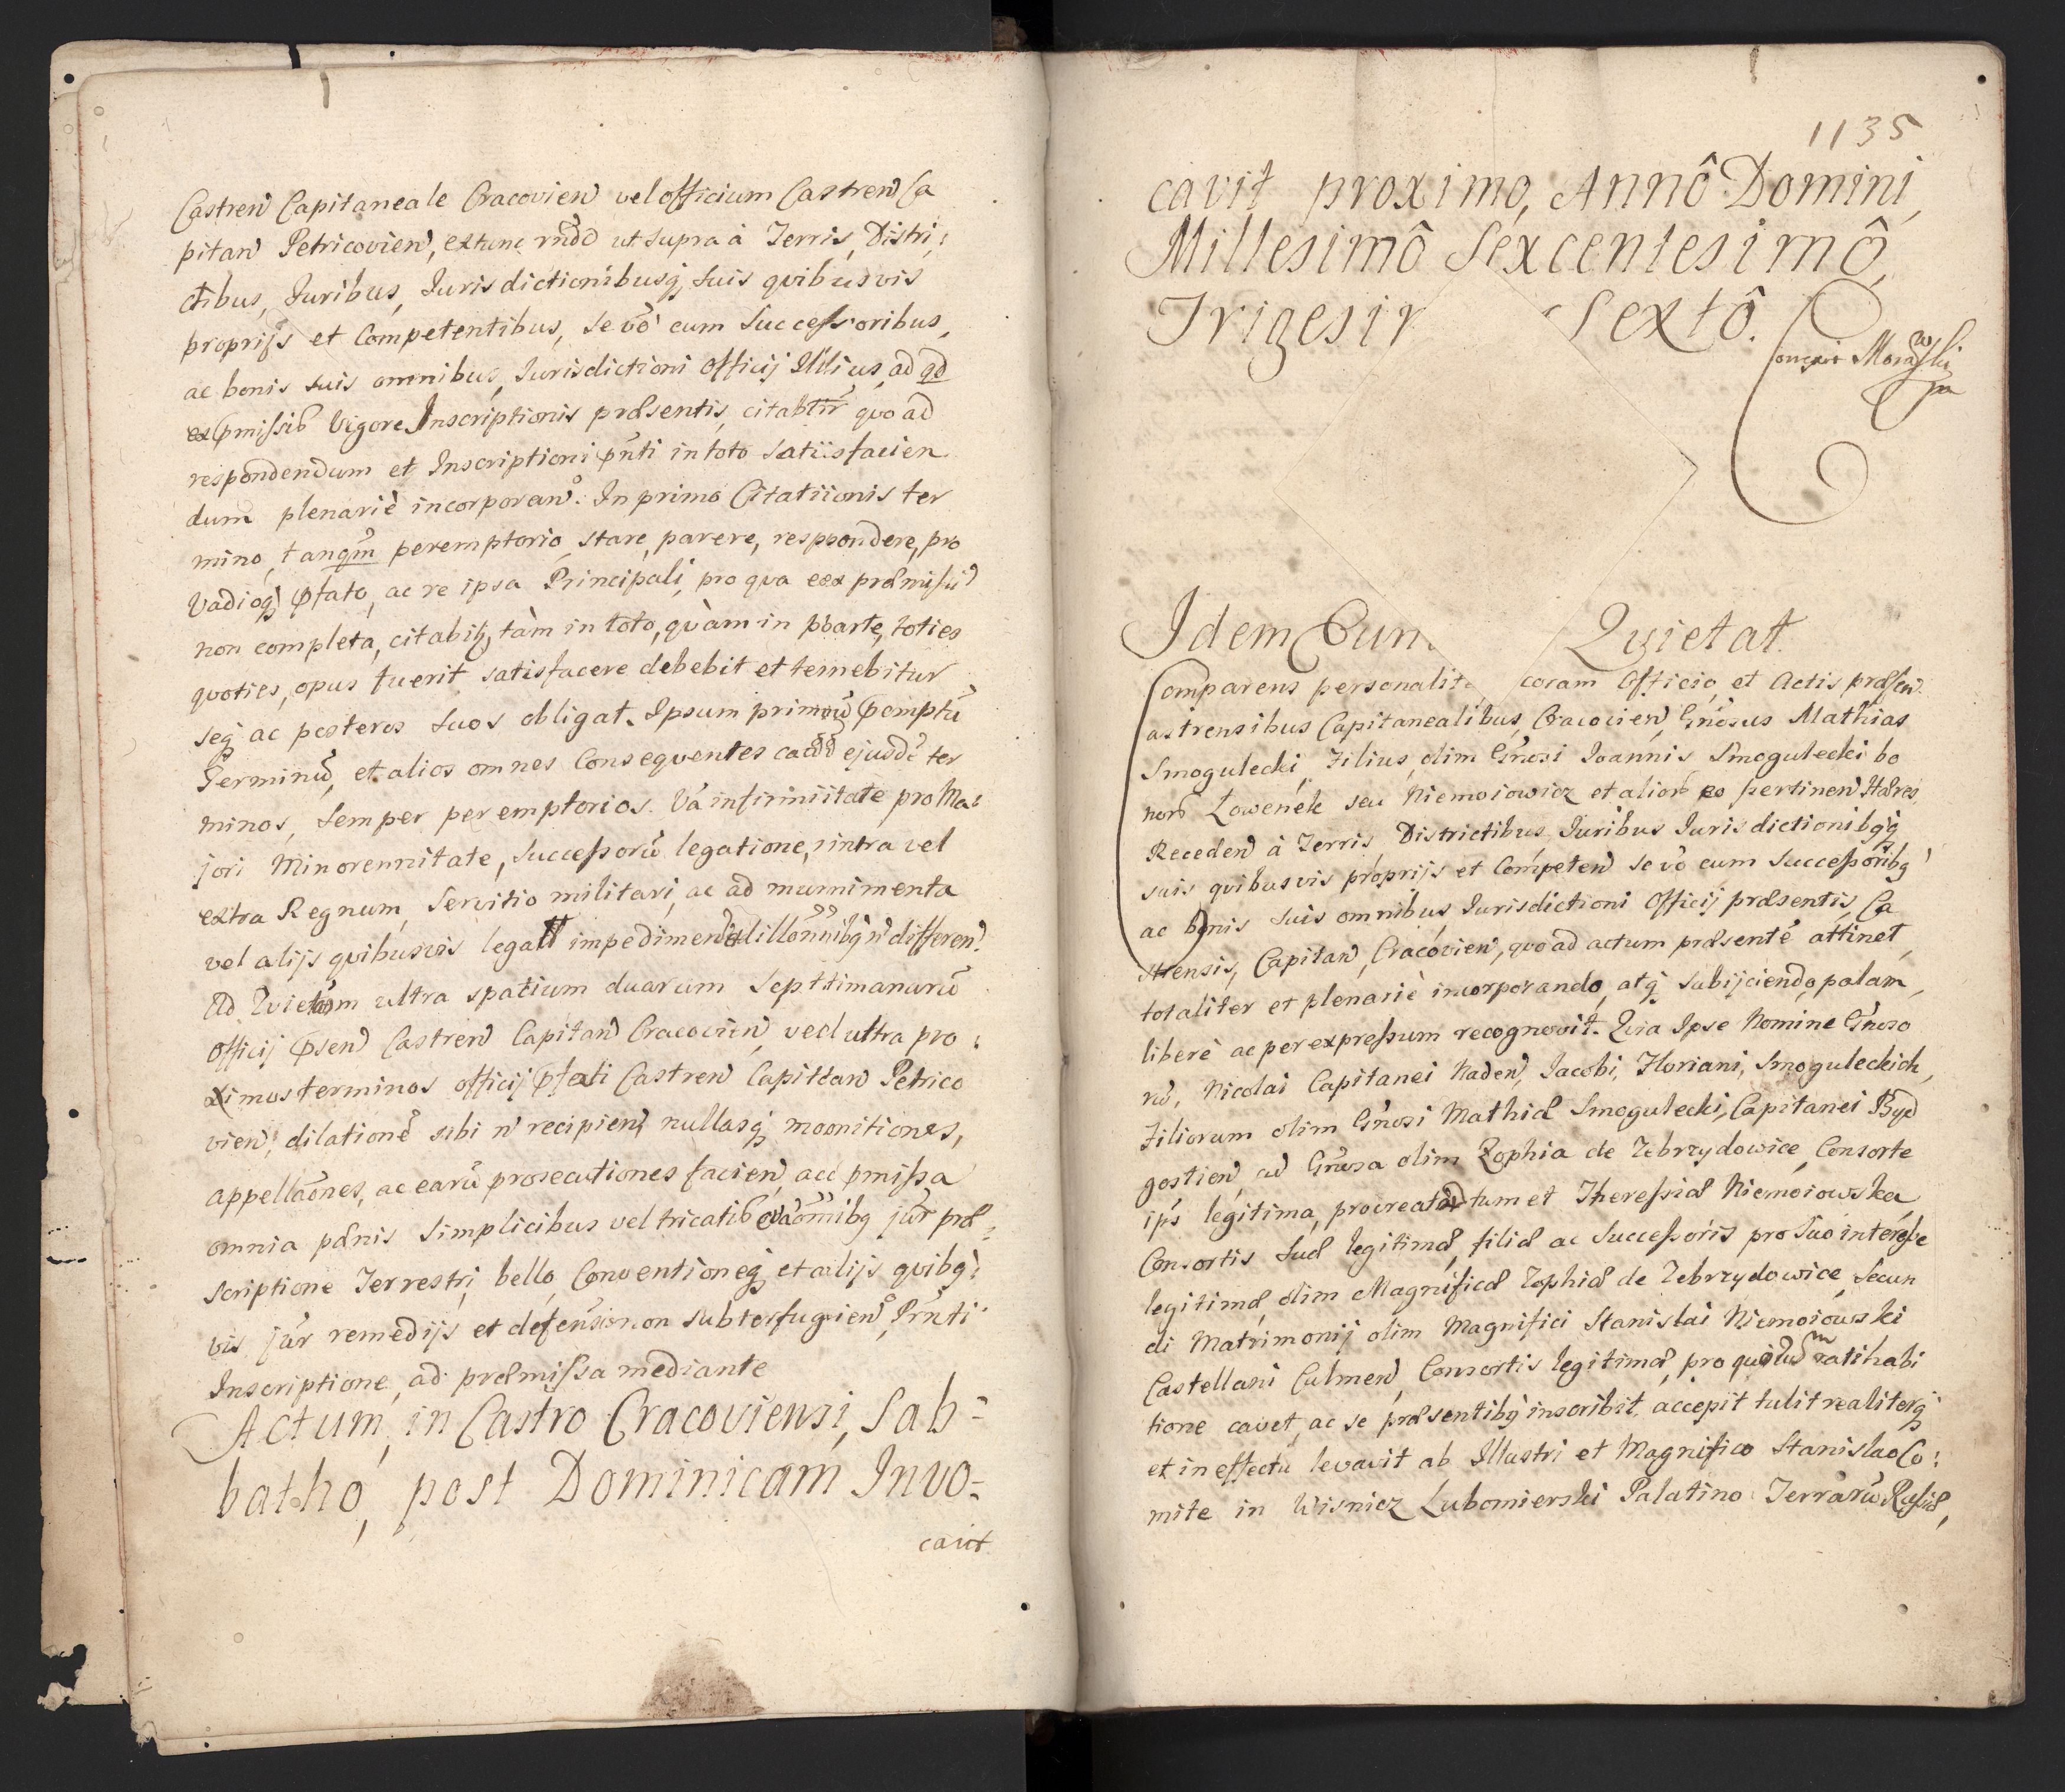 Castren Capitaneale Cracovien vel officium Castren Ca
pitan Petricovien, extunc rñdo ut supra à Terris, Distri:
ctibus, Juribus, Jurisdictionibusq, suis quibusvis
proprijs et Competentibus, se vo cum Successoribus,
ac bonis suis omnibus, Jurisdictioni Officij Illius, ad qd
ex pmissis Vigore Inscriptionis præsentis, citabtur quo ad
respondendum et Inscriptioni pnti in toto Satiisfacien
dum plenariè incorporan. In primo Citatiionis ter
mino, tanqm peremptorio, stare, parere, resppondere, pro
Vadioq pfato, ac re ipsa Principali, pro qua eex præmissi
non completa, citabit, tàm in toto, quàm in pbarte, toties
quoties, opus fuerit, satisfacere debebit et temebitur
seq ac posteros suos obligat. Ipsum primum pemptu
Terminu, et alios omnes Consequentes ejusde ter
minos, semper peremptorios. Va infirmiitate pro Ma:
jori Minorennitate, Successoru legatione, intra vel
extra Regnum, Servitio militari, ac ad munimenta
vel alijs quibusvis legall impedimen differen
Ad Quietam ultra spatium duarum Septtimanaru
Officij psen Castren Capitan Cracovien, vecl ultra pro:
ximos terminos officij pfati Castren Capittan Petrico
vien, dilatione sibi n recipien, nullasq moonitiones,
appellaones, ac earu prosecutiones facien, acc pmissa
omnia pænis simplicibus vel tricatib jur præ:
scriptione Terrestri, bello, Conventioneq et alijs quibq:
vis jur remedijs et defensio non subterfugien, Prnti
Inscriptione, ad præmissa mediante
Actum, in Castro Cracoviensi, Sab=
batho, post Dominicam Invo=
cavit
1135
cavit proximo, Annô Domini,
Millesimô Sexcentesimô,
Trigesi Sextô.
Idem Eun Quietat.
Comparens personalit coram Officio, et Actis præsen
astrensibus Capitanealibus, Cracovien, Gnosus Mathias
Smogulecki, Filius, olim Gnosi Joannis Smogulecki bo
nor Lowenek seu Niemoiowicz et alior eo pertinen Hæres,
Receden à Terris Districtibus, Juribus Jurisdictionibqq
suis quibusvis proprijs et Competen se vo cum Successoribq
ac bonis suis omnibus, Jurisdictioni Officij præsentis Ca
strensis, Capitan, Cracovien, quo ad actum præsente attinet,
totaliter et plenariè incorporando, atq subijciendo, palam,
liberè ac per expressum recognovit. Quia Ipse Nomine Gnoso
ru, Nicolai Capitanei Naden, Jacobi, Floriani, Smoguleckich,
Filiorum olim Gnosi Mathiæ Smogulecki, Capitanei Byd
gostien, cu Gnosa olim Zophia de Zebrzydowice, Consorte
ips legitima, procreat tum et Theressiæ Niemoiowska
Consortis suæ legitimæ, filiæ ac Successoris pro suo interesse
legitimæ, olim Magnificæ Zophiæ de Zebrzydowice, Secun
di Matrimonij olim Magnifici Stanislai Niemoiowski
Castellani Culmen, Consortis legitimæ, pro quibus ratihabi
tione cavet, ac se præsentibq inscribit, accepit tulit realiterq
et in effectu levavit ab Illustri et Magnifico Stanislao Co:
mite in Wisnicz Lubomierski Palatino Terraru Russiæ,